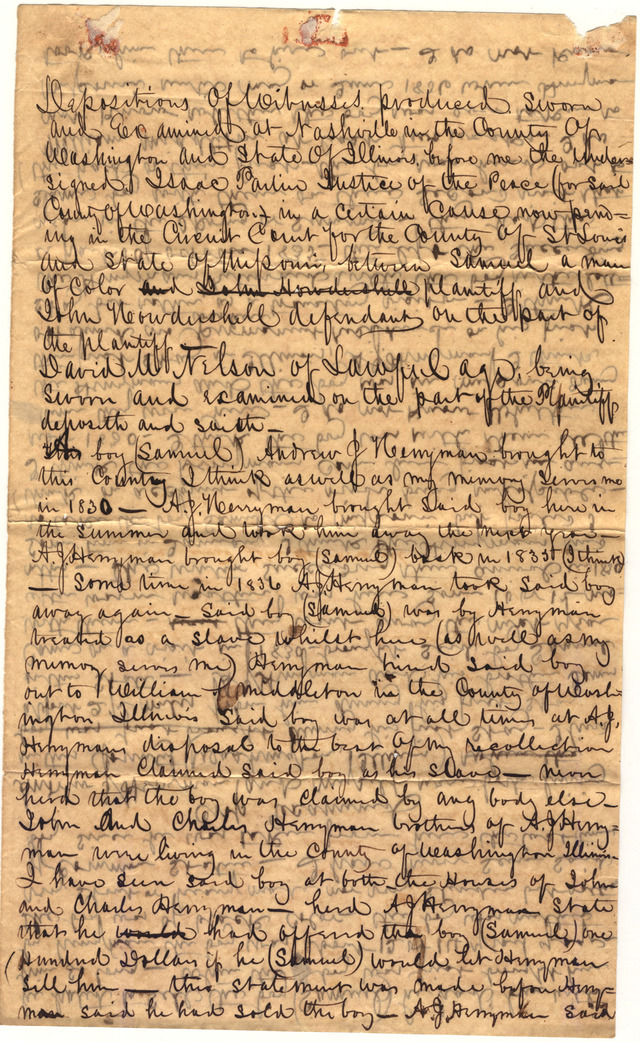 Depositions Of Witnesses produced, Sworn
and Examined at Nashville in the County Of
Washington and State Of Illinois, before me the under
signed Isaac Justice of the Peace (for Said
County Of Washington) in a certain Cause now pend-
ing in the Circuit Court for the County Of St Louis
and State Of Missouri, between Samuel a man
Of Color and John Howdeshell plaintiff and
John Howdeshell defendant on the part of
the plaintiff —
David M Nelson of Lawful age, being
Sworn and examined on the part of the Plaintiff
deposeth and saith —
This boy (Samuel) Andrew J Herryman brought to
this Country I think as well as my memory serves me
in 1830 — A.J. Herryman brought said boy here in
the Summer and took him away the next year.
A.J Herryman brought boy (Samuel) back in 1835 (I think)
— Some time in 1836 A.J. Herryman took said boy
away again — said boy (Samuel) was by Herryman
treated as a slave whilst here (as well as my
memory serves me) Herryman hired said boy
out to William Middleton in the County of Wash-
ington Illinois Said boy was at all times at A.J.
Herrymans disposal to the best Of my recollection
Herryman Claimed Said boy as his Slave — never
herd that the boy was claimed by any body else —
John and Charles Herryman brothers of A.J Herry-
man were living in the County of Washington Illinois
I have seen said boy at both the Houses of John
and Charles Herryman — herd A.J Herryman State
that he would had offered the boy (Samuel) one
Hundred Dollars if he (Samuel) would let Herryman
sell him — this statement was made before Herry-
man said he had sold the boy — A.J. Herryman said